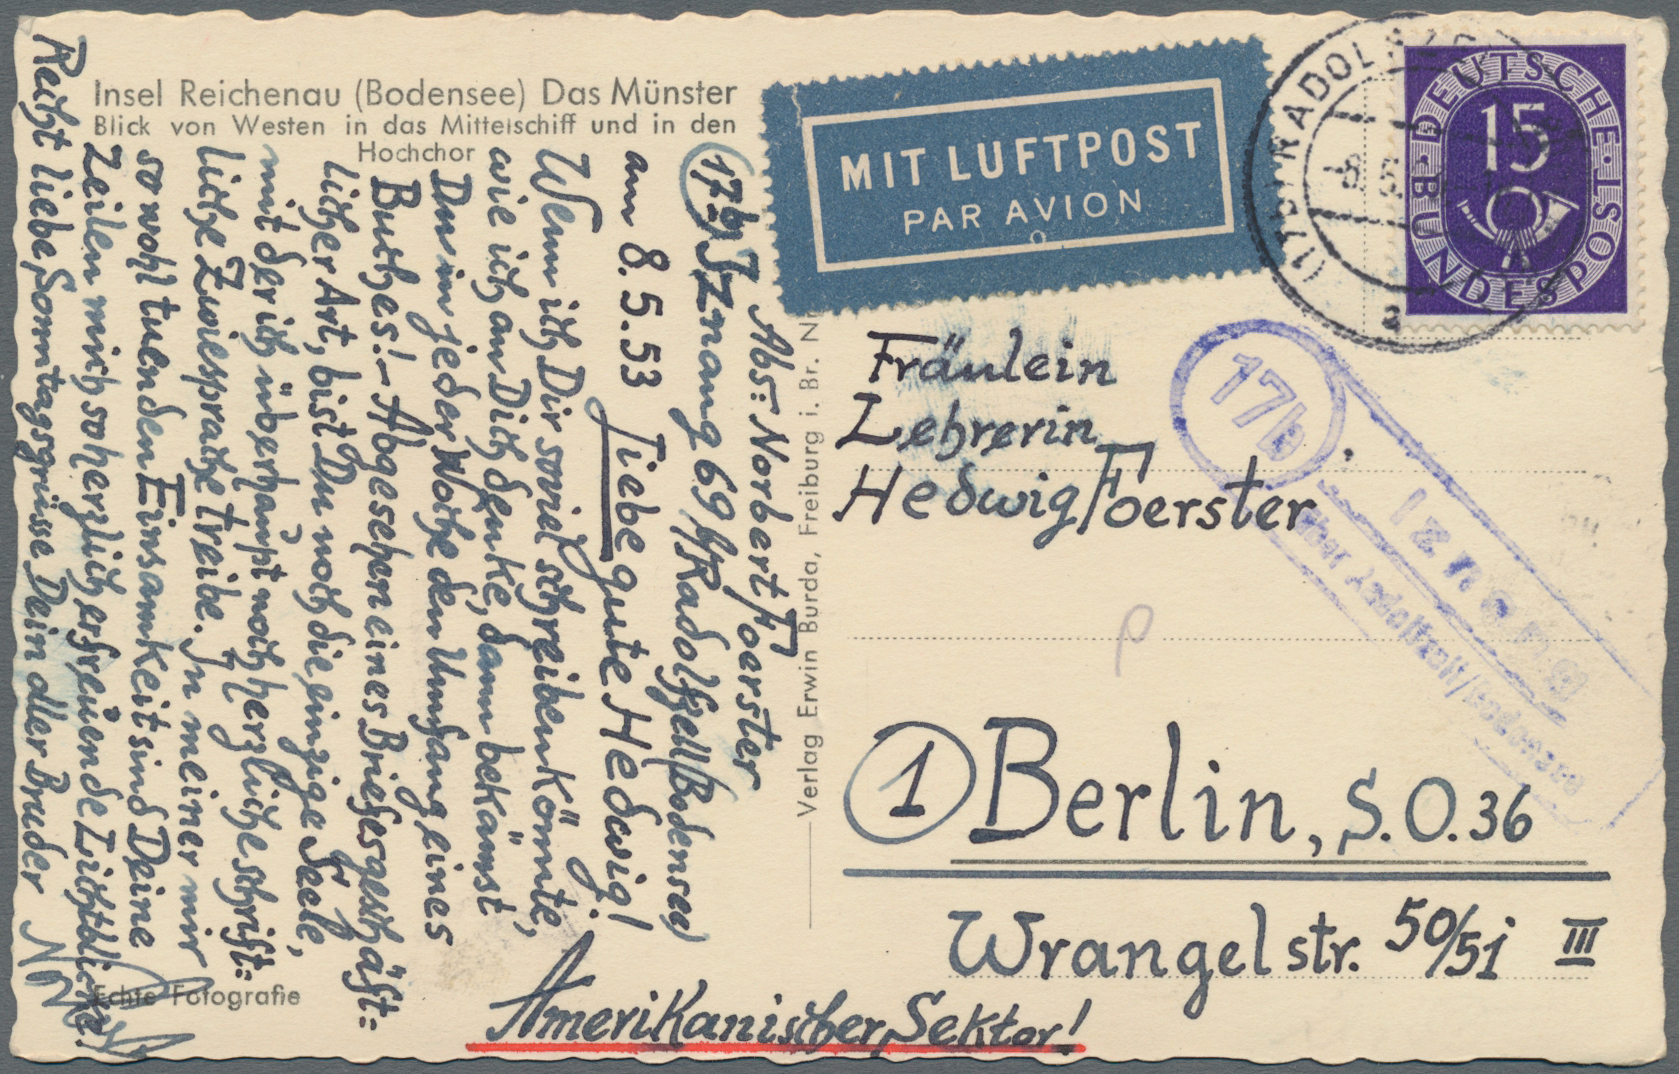 Insel Reichenau (Bodensee) Das Münster
Blick von Westen in das Mittelschiff und in den
Hochchor
MIT LUFTPOST
PAR AVION
DEUTSCHE BUNDESPOST
15
(17b) RADOLFZELL
8.5.
a
17b
Iznang
über Radolfzell/Bodensee
Abs: Norbert Foerster
(17b) Iznang 69 b/Radolfzell (Bodensee)
am 8.5.53 Liebe gute Hedwig!
Wenn ich Dir soviel schreiben könnte,
wie ich an Dich denke, dann bekämst
Du in jeder Woche den Umfang eines
Buches! - Abgesehen eines Briefes geschäft=
licher Art, bist Du noch die einzige Seele,
mit der ich überhaupt noch herzliche schrift=
liche Zwiesprache treibe. In meiner mir
so wohltuenden Einsamkeit sind Deine
Zeilen mich so herzlich erfreuende Lichtblicke!
Recht liebe Sonntagsgrüsse Dein aller Bruder
Verlag Erwin Burda, Freiburg i. Br.
Echte Fotografie
Fräulein
Lehrerin
Hedwig Foerster
(1) Berlin, S.O. 36
Wrangelstr. 50/51 III
Amerikanischer Sektor!